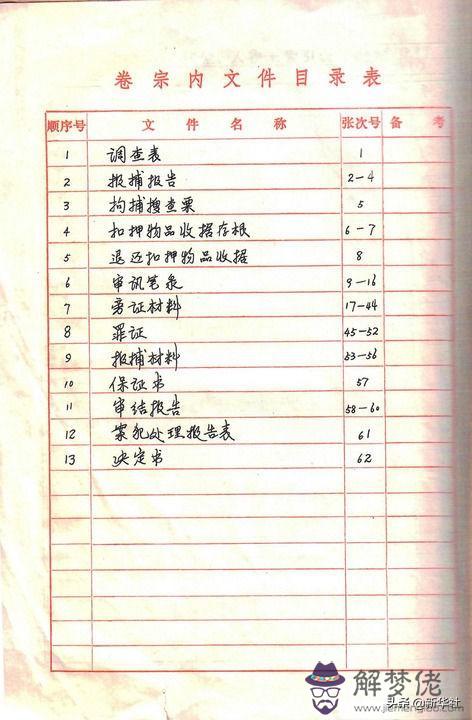 卷宗内文件目录表
顺序号 文件名称 张次号 备考
1 调查表 1
2 报捕报告 2-4
3 拘捕搜查票 5
4 扣押物品收据存根 6-7
5 退还扣押物品收据 8
6 审讯笔录 9-16
7 旁证材料 17-44
8 罪证 45-52
9 报捕材料 53-56
10 保证书 57
11 审结报告 58-60
12 案犯处理报告表 61
13 决定书 62
解梦佬
www.jiemenglao.com
头条@新华社